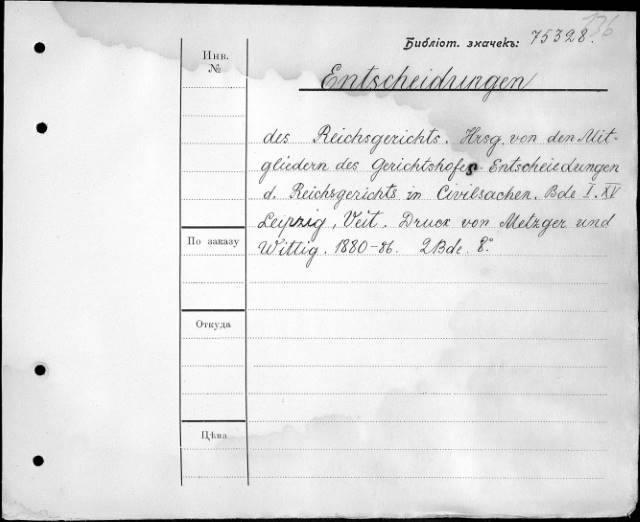 136
Библіот. значекъ: 75328.
Инв.
№
Entscheidungen
des Reichsgerichts. Hrsg. von den Mit-
gliedern des Gerichtshofes Entscheidungen
d. Reichsgerichts in Civilsachen. Bde I. XV
Leipzig, Veit. Druck von Metzger und
Wittig. 1880-86. 2 Bde. 8°
По заказу
Откуда
Цѣна